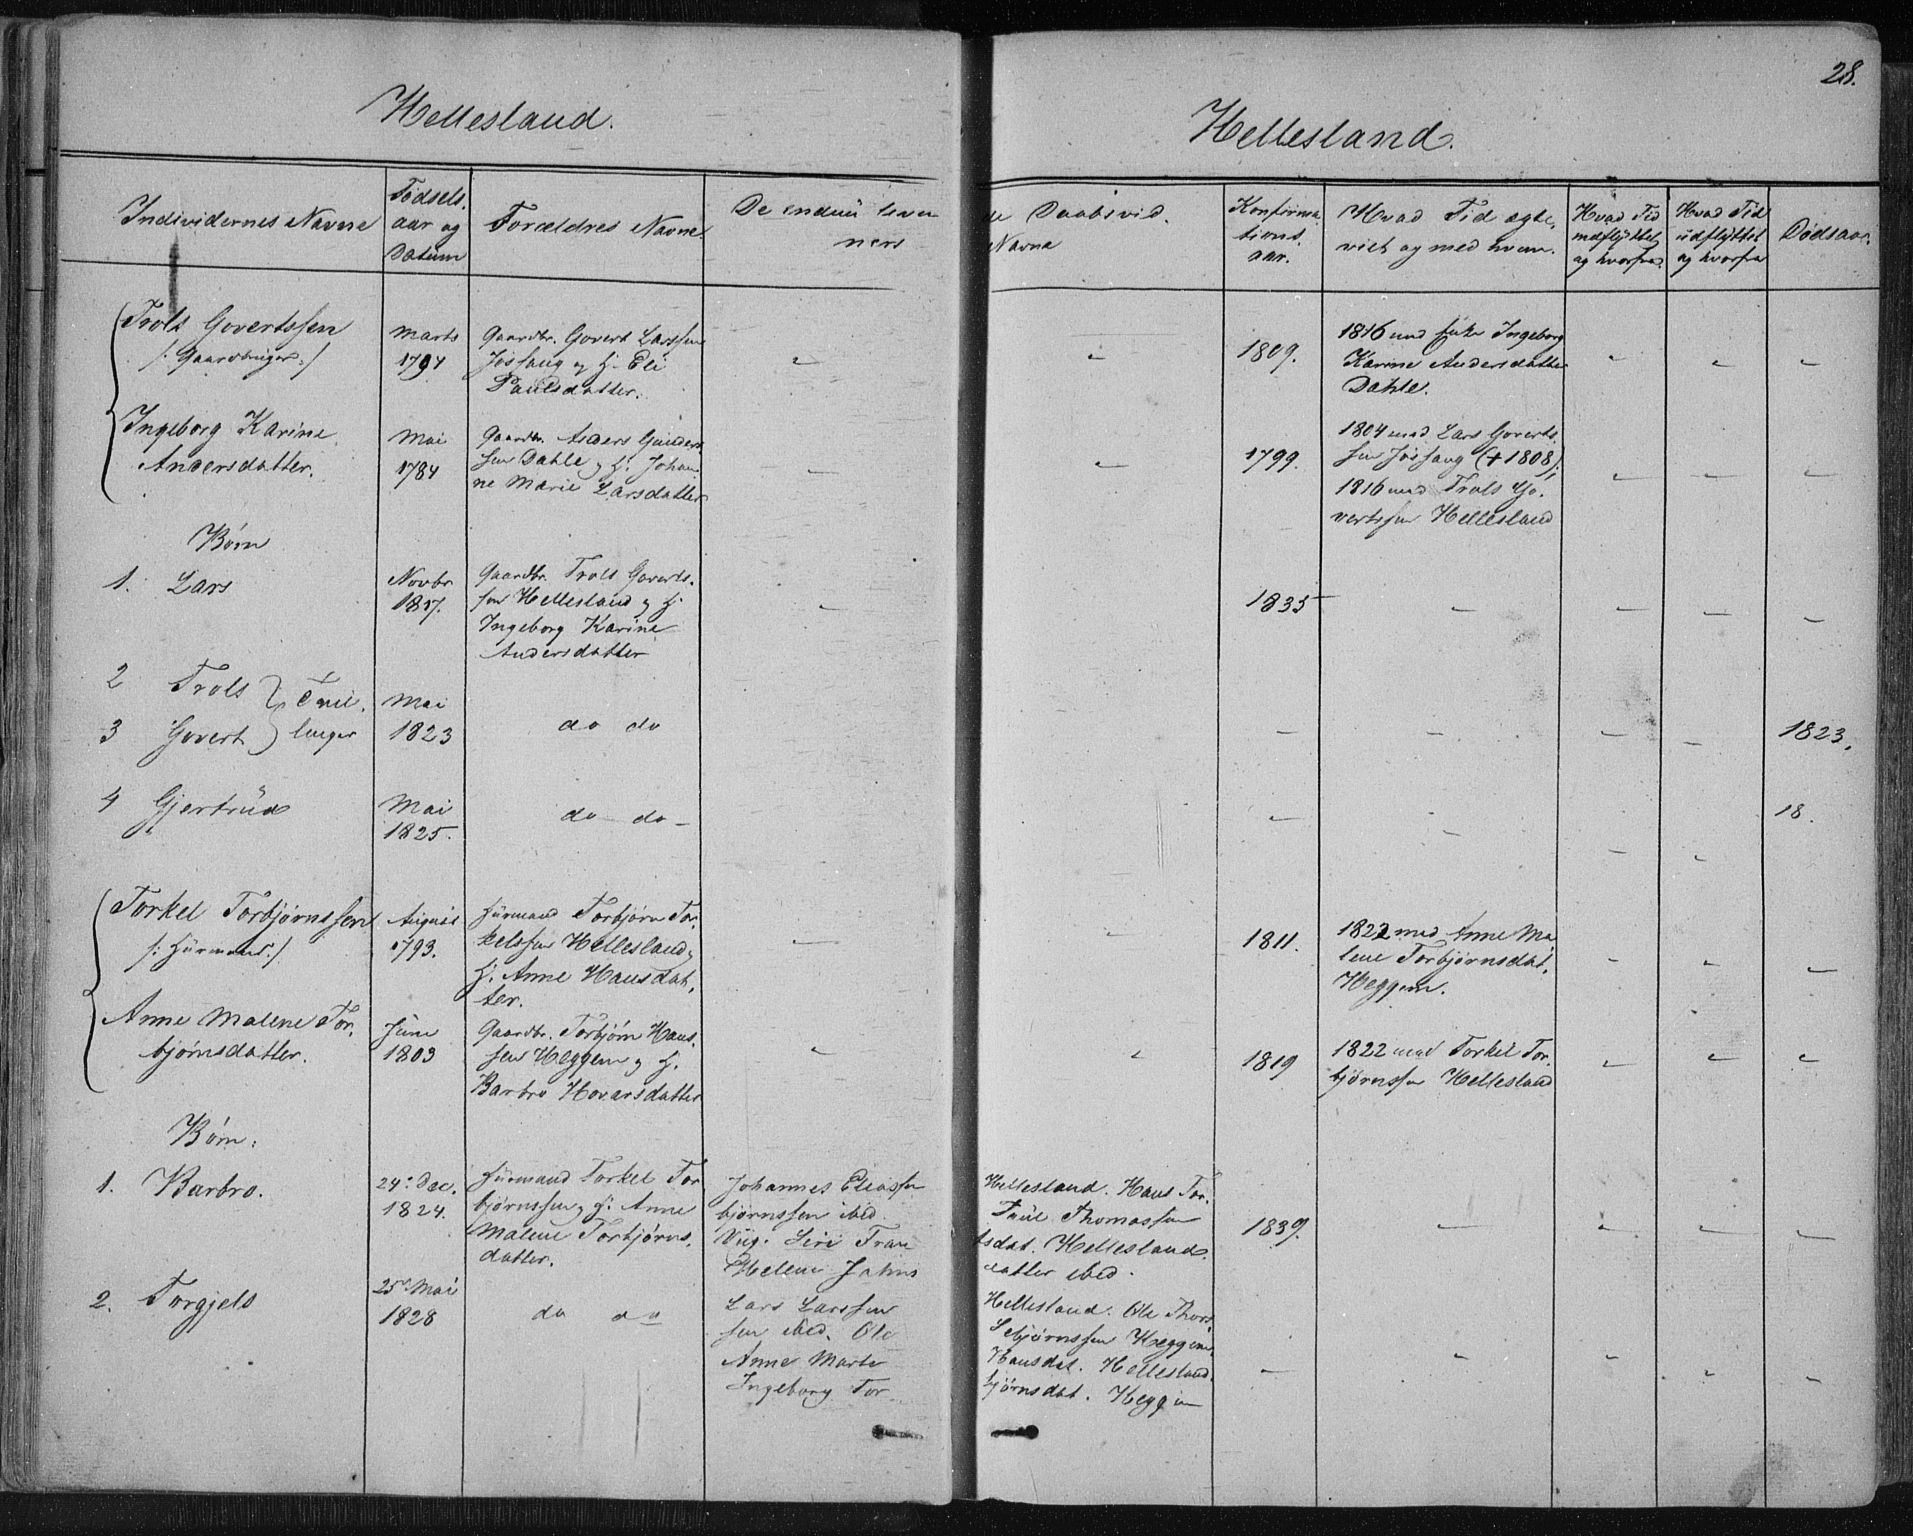 28.
Hellesland.
Hellesland.
Individernes Navne
Fødsels.
aar og
Datum
Forældres Navne.
De endnu leven
ners
de Daabsvid.
Navne
Konfirma
tions.
aar.
Hvad Tid ægte,
viet og med hvem.
Hvad Tid
indflyttet
og hvorfra.
Hvad Tid
udflyttet
og hvorfra
Dødsaar.
Trols Govertssen
/: Gaardbruger :/
Marts
1794
Gaardbr. Govert Larssen
Jøssang og H. Eli
Paulsdatter.
1809.
1816 med Enke Ingeborg
Karine Andersdatter
Dahle.
Ingeborg Karine
Andersdatter.
Mai
1784
Gaardbr. Anders Gunders
sen Dahle og H. Johan
ne Marie Larsdatter
1799.
1804 med Lars Goverts.
sen Jøssang (+ 1808);
1816 med Trols Go,
vertssen Hellesland
Børn
1. Lars
Novbr.
1817.
Gaardbr. Trols Goverts.
sen Hellesland og H.
Ingeborg Karine
Andersdatter
1835
2 Trols } Tvil,
3 Govert } linger
Mai
1823
do do
1823.
4 Gjertrud
Mai
1825.
do do
18.
Torkel Torbjørnssen
/: Huusmand :/
August
1793.
Huusmand Torbjørn Tor,
kelssen Hellesland og
H. Anne Hansdat,
ter.
1811.
1822 med Anne Ma
lene Torbjørnsdat.
Heggem.
Anne Malene Tor,
bjørnsdatter.
Juni
1803
Gaardbr. Torbjørn Hans,
sen Heggem og H.
Barbro Hovarsdatter
1819
1822 med Torkel Tor,
bjørnssen Hellesland
Børn.
1. Barbro.
24. Dec.
1824.
Huusmand Torkel Tor
bjørnssen og H. Anne
Malene Torbjørns,
datter.
Johannes Eliassen
Hellesland. Hans Tor,
bjørnssen ibid.
Paul Thomassen
Siri
tsdat. Hellesland.
Helene Johns
datter ibid.
1839.
2. Torgjels
25. Mai
1828
do do
Lars Larssen
Hellesland. Ole Thors
sen ibid. Ole
bjørnssen Heggem.
Anne Marte
Hansdat. Hellesland.
Ingeborg Tor
bjørnsdat. Heggem